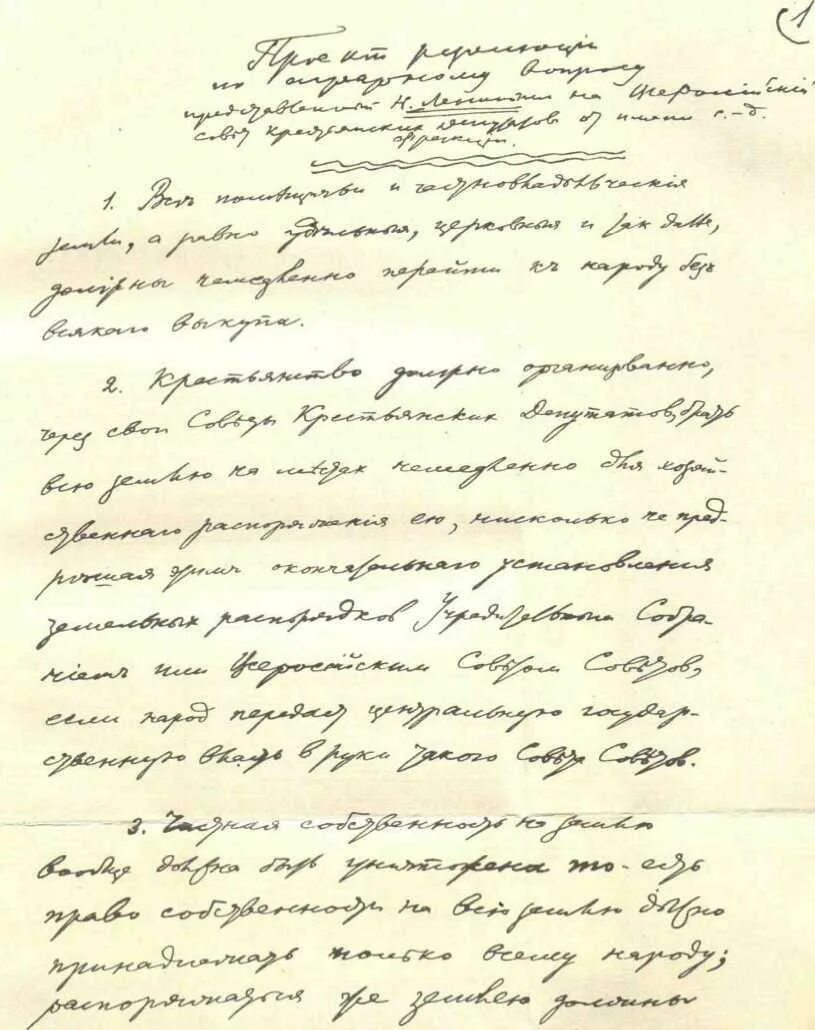 1
Проект резолюціи
по аграрному вопросу
представленный Н. Лениным на Всероссійскій
совѣт крестьянских депутатов от имени с.-д.
фракціи.
1. Всѣ помѣщичьи и частновладѣльческія
земли, а равно удѣльныя, церковныя и так далѣе,
должны немедленно перейти къ народу безъ
всякаго выкупа.
2. Крестьянство должно организованно,
через свои Совѣты Крестьянских Депутатов, брать
всю землю на мѣстах немедленно для хозяй-
ственнаго распоряженія ею, нисколько не пред-
рѣшая этимъ окончательнаго установления
земельных распорядков Учредительным Собра-
ніемъ или Всеросійским Совѣтом Совѣтов,
если народ передаст центральную государ-
ственную власть в руки такого Совѣта Совѣтов.
3. Частная собственность на землю
вообще должна быть уничтожена то-есть
право собственности на всю землю должно
принадлежать только всему народу;
распоряжаться же землею должны